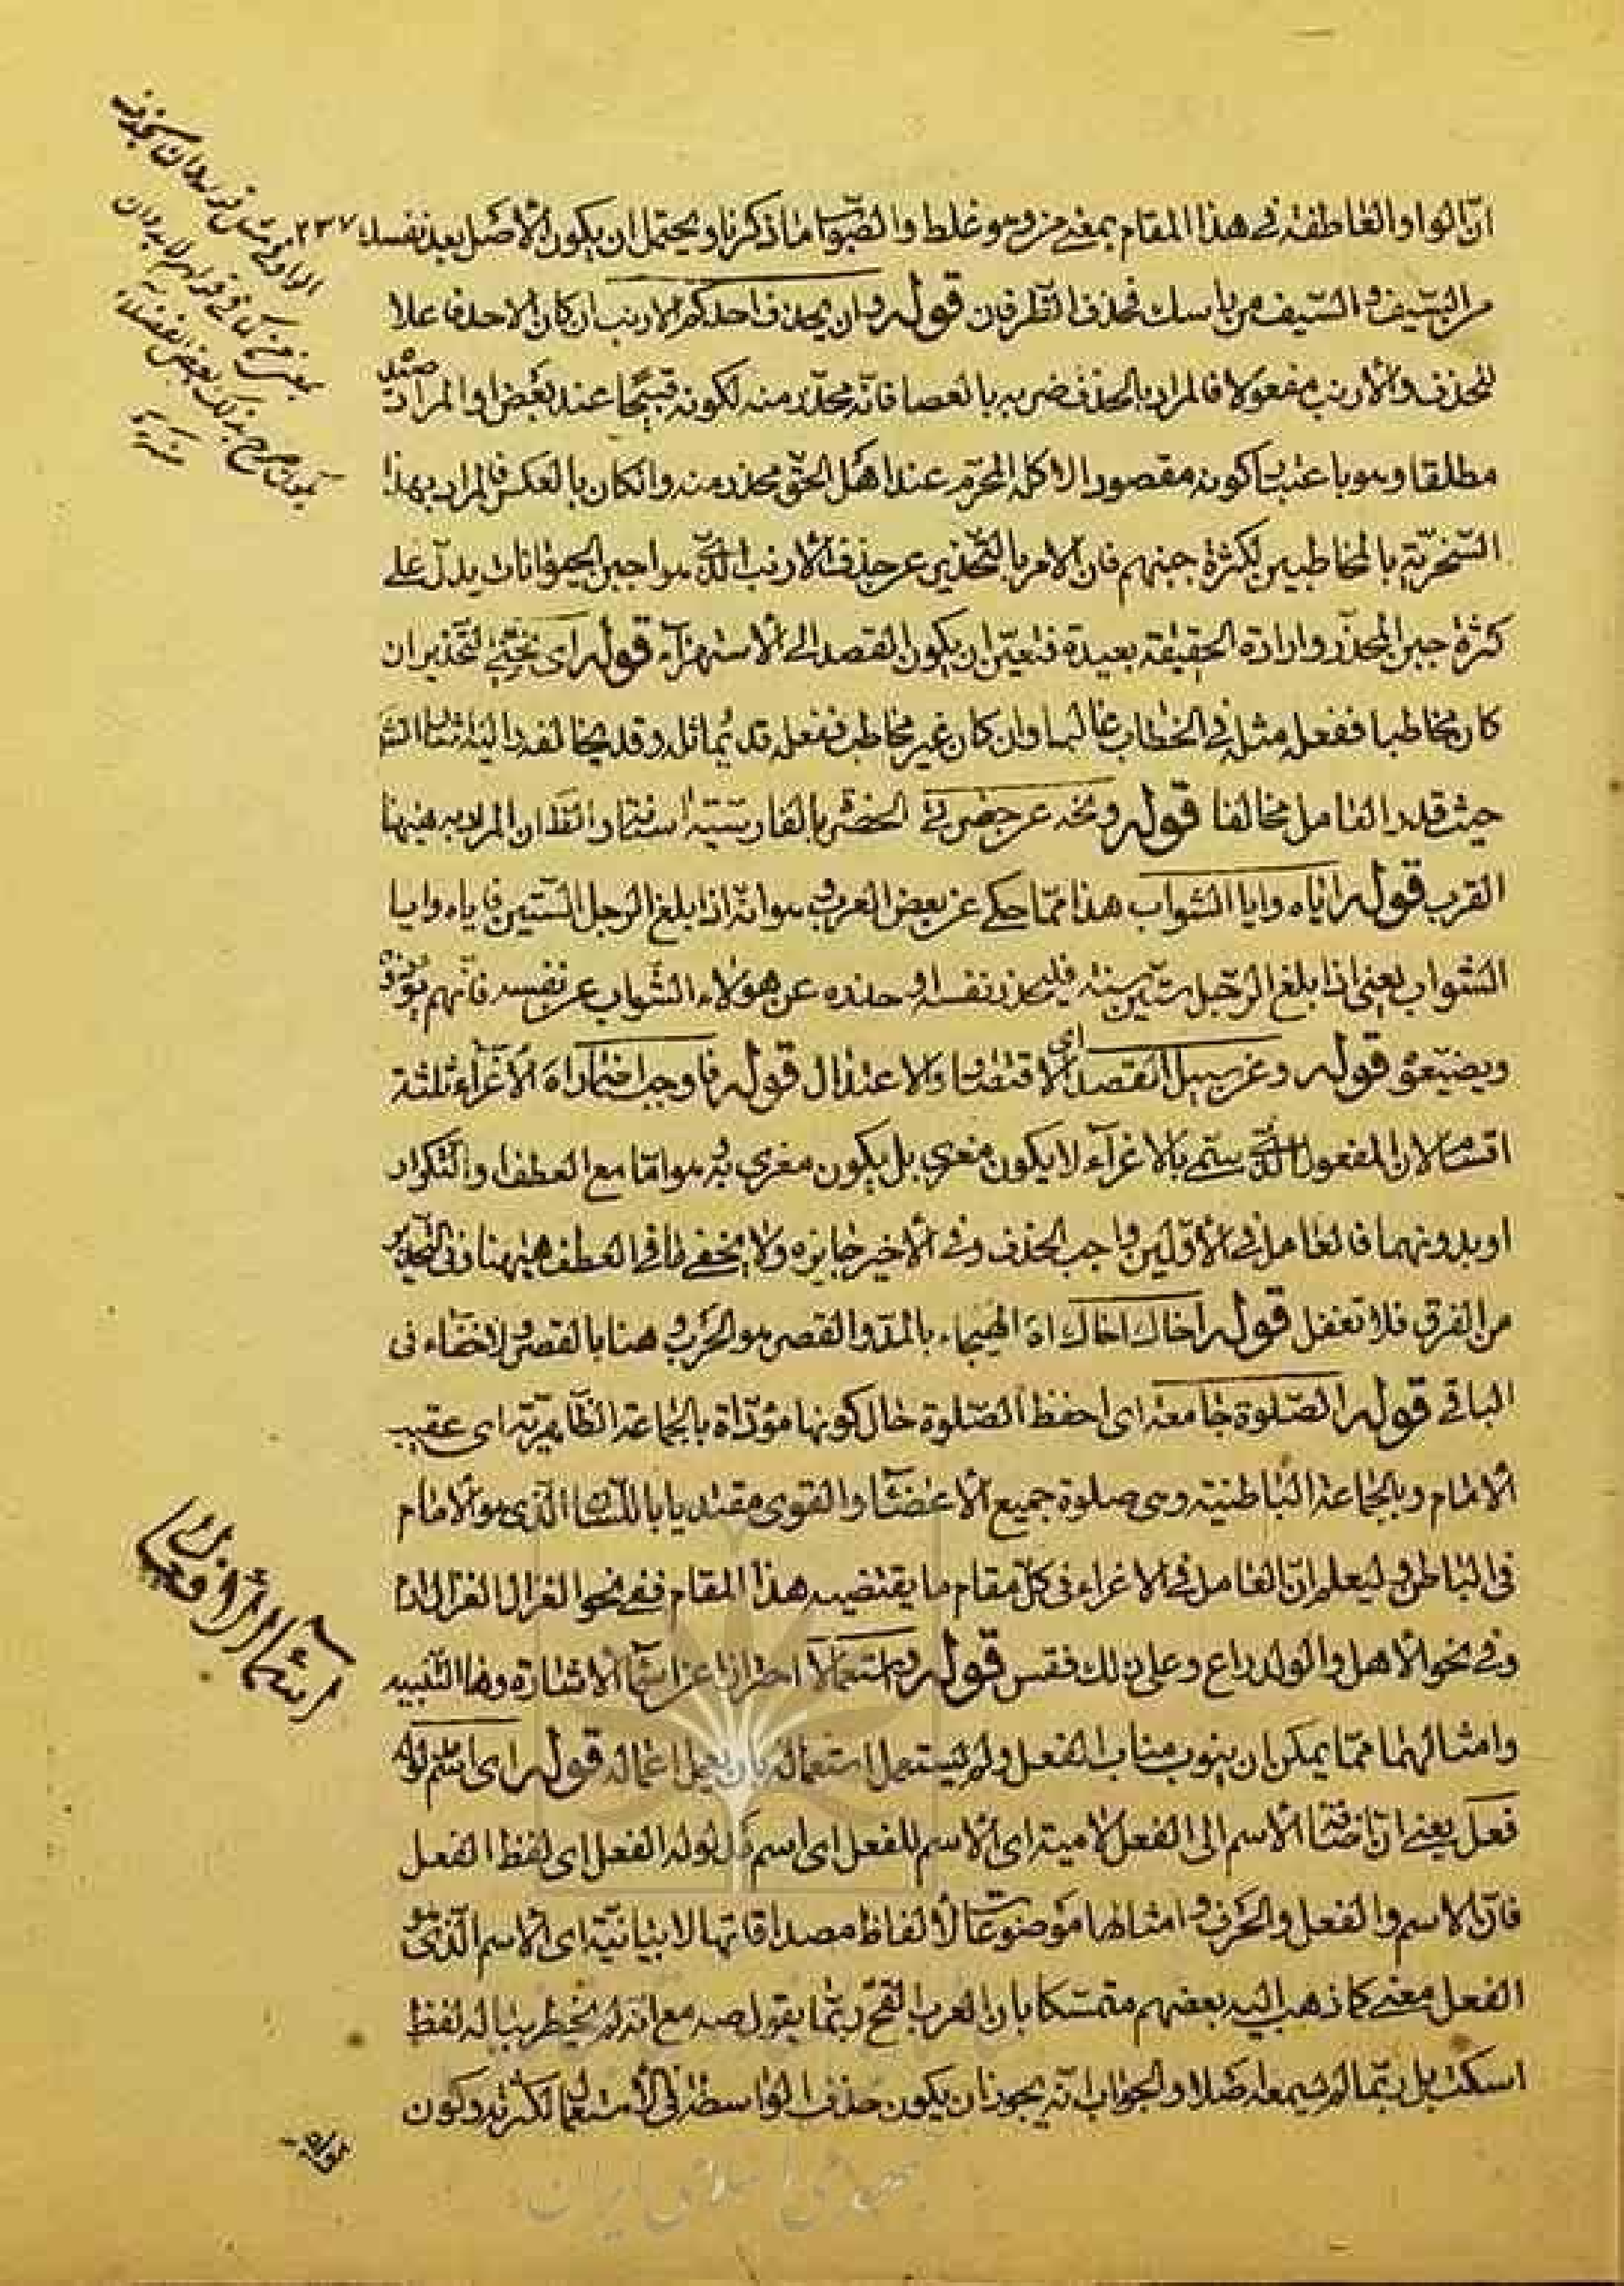 انّ الواو العاطفة فى هذا المقام بمعنى من وهو غلط والصّواب ما ذكرنا ويحتمل ان يكون الأصل بعد نفسك ٢٣٧
من السّيف والسّيف من باسك فحذف الظرفان قوله وان يحذف احدكم الارنب ان كان الاحد فاعلا
للحذف والأرنب مفعولا فالمراد بالحذف ضربه بالعصا فانّه محذّر منه لكونه قبيحًا عند بعض او المراد صيده
مطلقا وهو باعتبار كونه مقصورا لاكله المحرّم عند اهل الحقّ محذر منه وان كان بالعكس فالمراد بهذا
السّخريّة بالمخاطبين لكثرة جبنهم فان الامر بالتّحذير عن حذف الأرنب الّذى هو اجبن الحيوانات يدلّ على
كثرة جبن المحذّر وارادة الحقيقة بعيدة فتعيّن ان يكون القصد الى الأستهزآء قوله اى نحّنى التحذير ان
كان مخاطبا ففعله مثله فى الخطاب غالبا وان كان غير مخاطب ففعله قد يماثله وقد يخالفه واليه اشار الش
حيث قدر العامل مخالفا قوله ونحه عن حضرتى الحضرة بالفارسية الظ ان المراد به هنا
القرب قوله اياه وايا الشواب هذا ممّا حكى عن بعض العرب وهو انّه اذا بلغ الرجل السّتين فاياه وايا
الشواب يعنى اذا بلغ الرّجل ستّين سنة فليحذر نفسه او حذره عن هؤلاء الشّواب عن نفسه فانّهم
قوله وعن سبيل القصد اى الاقتصاد والاعتدال قوله فاوجب اضماره اه الأغراء ثلثة
اقسام لان المفعول الّذى سمّى بالاغرآء لا يكون مغرى بل يكون مغرى به هو امّا مع العطف او التّكرار
او بدونهما فالعامل فى الأوّلين واجب الحذف وفى الأخير جايزه ولا يخفى ما فى العطف هيهنا وفى التّحذير
من الفرق فلا تغفل قوله اخاك اخاك اه الهيجاء بالمدّ والقصر هو الحرب وهنا بالقصر ولا خفاء فى
الباقى قوله الصّلوة جامعة اى احفظ الصّلوة حال كونها مؤدّاة بالجماعة الظّاهريّة اى عقيب
الأمام وبالجماعة الباطنية وهى صلوة جميع الأعضاء والقوى مقتديا باللسان الّذى هو الأمام
فى الباطن وليعلم انّ العامل فى الاغراء فى كلّ مقام ما يقتضيه هذا المقام ففى نحو الغزال الغزال ارم
وفى نحو الأهل والولد راع وعلى ذلك فقس قوله واستعمالا احتراز عن اسمآء الاشارة وها التّنبيه
وامثالهما ممّا يمكن ان ينوب مناب الفعل ولم يستعمل استعماله بان يعمل اعماله قوله اى اسم
فعل يعنى انّ اضافة الأسم الى الفعل لامية اى الأسم للفعل اى اسم مدلوله الفعل اى لفظ الفعل
فانّ الاسم والفعل والحرف وامثالها موضوعات لألفاظ مصداقاتها لا بيانيّة اى الأسم الّذى هو
الفعل معنى كما ذهب اليه بعضهم متمسّكا بان العرب القحّ ربّما يقول صه مع انّه لم يخطر بباله لفظ
اسكت بل ربّما لم يسمعه اصلا والجواب انّه يجوز ان يكون حذف الواسطة فى الأستعمال لكثرته وكون
اسماء الافعال